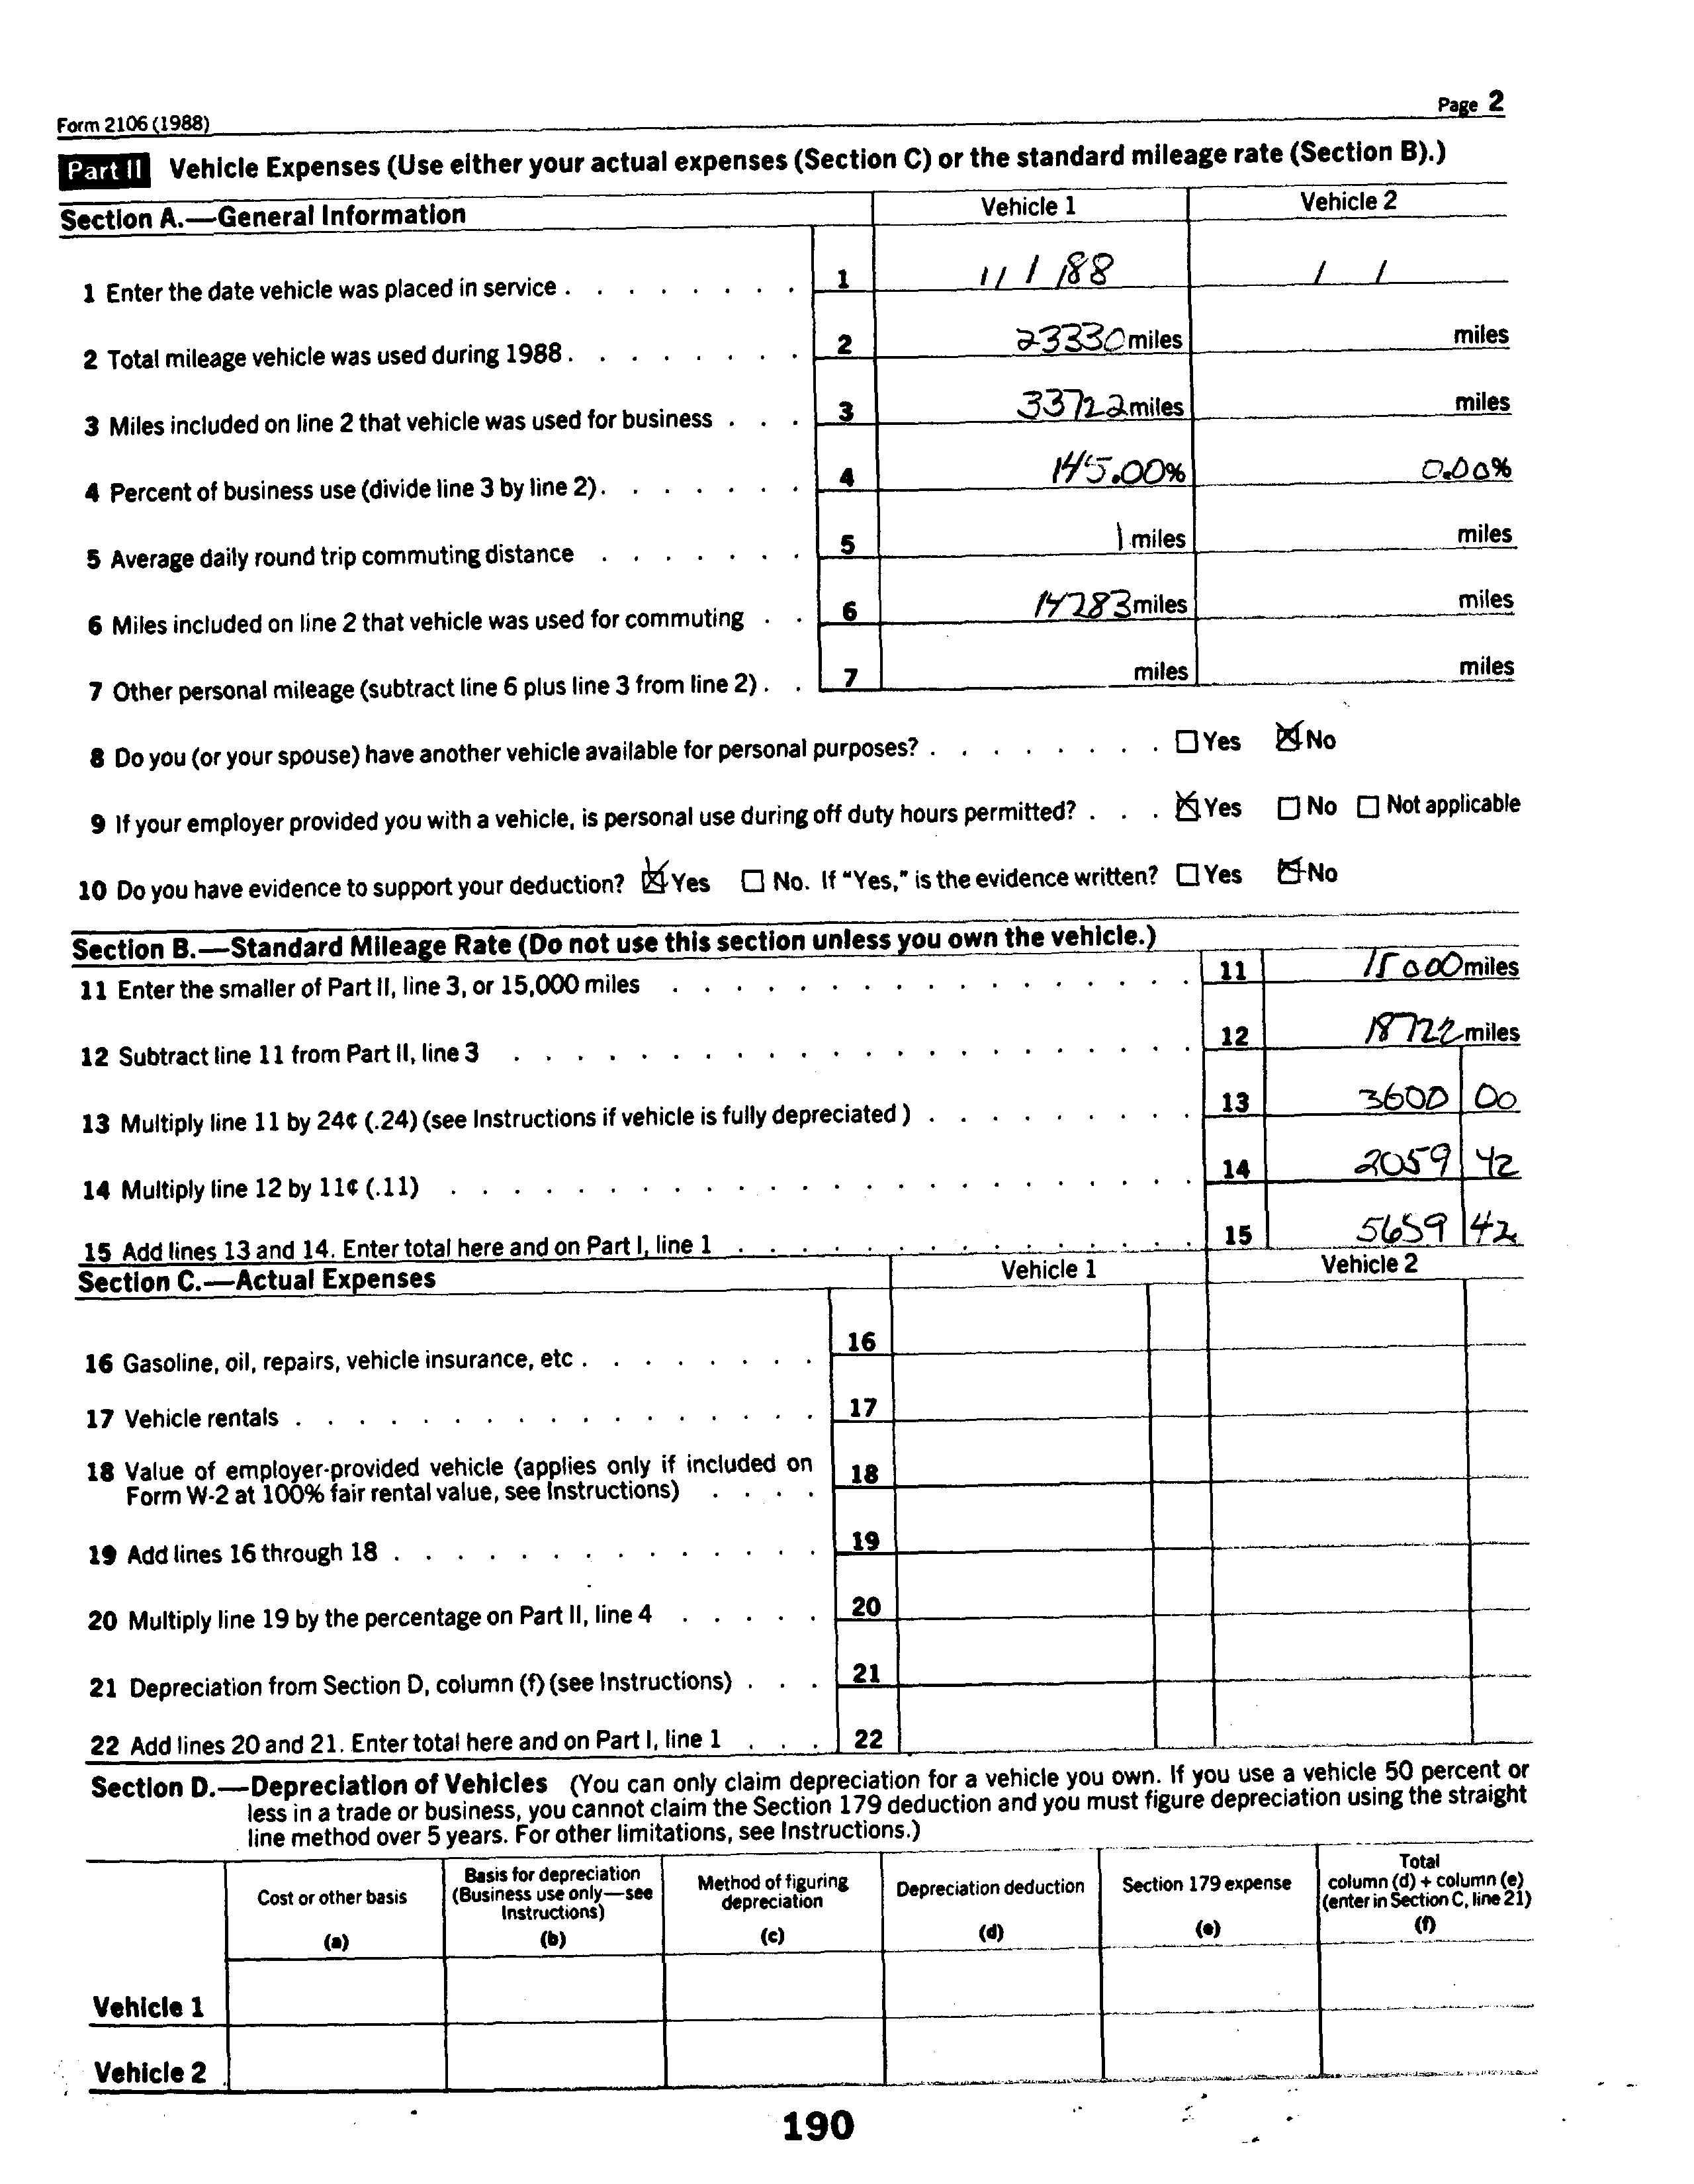 Form 2106 (1988) Page 2
Part II Vehicle Expenses (Use either your actual expenses (Section C) or the standard mileage rate (Section B).)
Section A.—General Information Vehicle 1 Vehicle 2
1 Enter the date vehicle was placed in service . . . . . . . . 1 11 / 1 /88 / /
2 Total mileage vehicle was used during 1988 . . . . . . . . 2 23330 miles miles
3 Miles included on line 2 that vehicle was used for business . . . 3 33722 miles miles
4 Percent of business use (divide line 3 by line 2) . . . . . . . 4 145.00% 0.00%
5 Average daily round trip commuting distance . . . . . . . 5 1 miles miles
6 Miles included on line 2 that vehicle was used for commuting . . 6 14283 miles miles
7 Other personal mileage (subtract line 6 plus line 3 from line 2) . . 7 miles miles
8 Do you (or your spouse) have another vehicle available for personal purposes? . . . . . . . . ☐ Yes ☒ No
9 If your employer provided you with a vehicle, is personal use during off duty hours permitted? . . . ☒ Yes ☐ No ☐ Not applicable
10 Do you have evidence to support your deduction? ☒ Yes ☐ No. If "Yes," is the evidence written? ☐ Yes ☒ No
Section B.—Standard Mileage Rate (Do not use this section unless you own the vehicle.)
11 Enter the smaller of Part II, line 3, or 15,000 miles . . . . . . . . . . . . . . . . . 11 15000 miles
12 Subtract line 11 from Part II, line 3 . . . . . . . . . . . . . . . . . . . . . . 12 18722 miles
13 Multiply line 11 by 24¢ (.24) (see Instructions if vehicle is fully depreciated ) . . . . . . . . . 13 3600 00
14 Multiply line 12 by 11¢ (.11) . . . . . . . . . . . . . . . . . . . . . . . . 14 2059 42
15 Add lines 13 and 14. Enter total here and on Part I, line 1 . . . . . . . . . . . . . . . 15 5659 42
Section C.—Actual Expenses Vehicle 1 Vehicle 2
16 Gasoline, oil, repairs, vehicle insurance, etc . . . . . . . . 16
17 Vehicle rentals . . . . . . . . . . . . . . . . . 17
18 Value of employer-provided vehicle (applies only if included on 18
Form W-2 at 100% fair rental value, see Instructions) . . . .
19 Add lines 16 through 18 . . . . . . . . . . . . . . 19
20 Multiply line 19 by the percentage on Part II, line 4 . . . . . 20
21 Depreciation from Section D, column (f) (see Instructions) . . . 21
22 Add lines 20 and 21. Enter total here and on Part I, line 1 . . . 22
Section D.—Depreciation of Vehicles (You can only claim depreciation for a vehicle you own. If you use a vehicle 50 percent or
less in a trade or business, you cannot claim the Section 179 deduction and you must figure depreciation using the straight
line method over 5 years. For other limitations, see Instructions.)
Cost or other basis
(a)
Basis for depreciation
(Business use only—see
Instructions)
(b)
Method of figuring
depreciation
(c)
Depreciation deduction
(d)
Section 179 expense
(e)
Total
column (d) + column (e)
(enter in Section C, line 21)
(f)
Vehicle 1
Vehicle 2
190